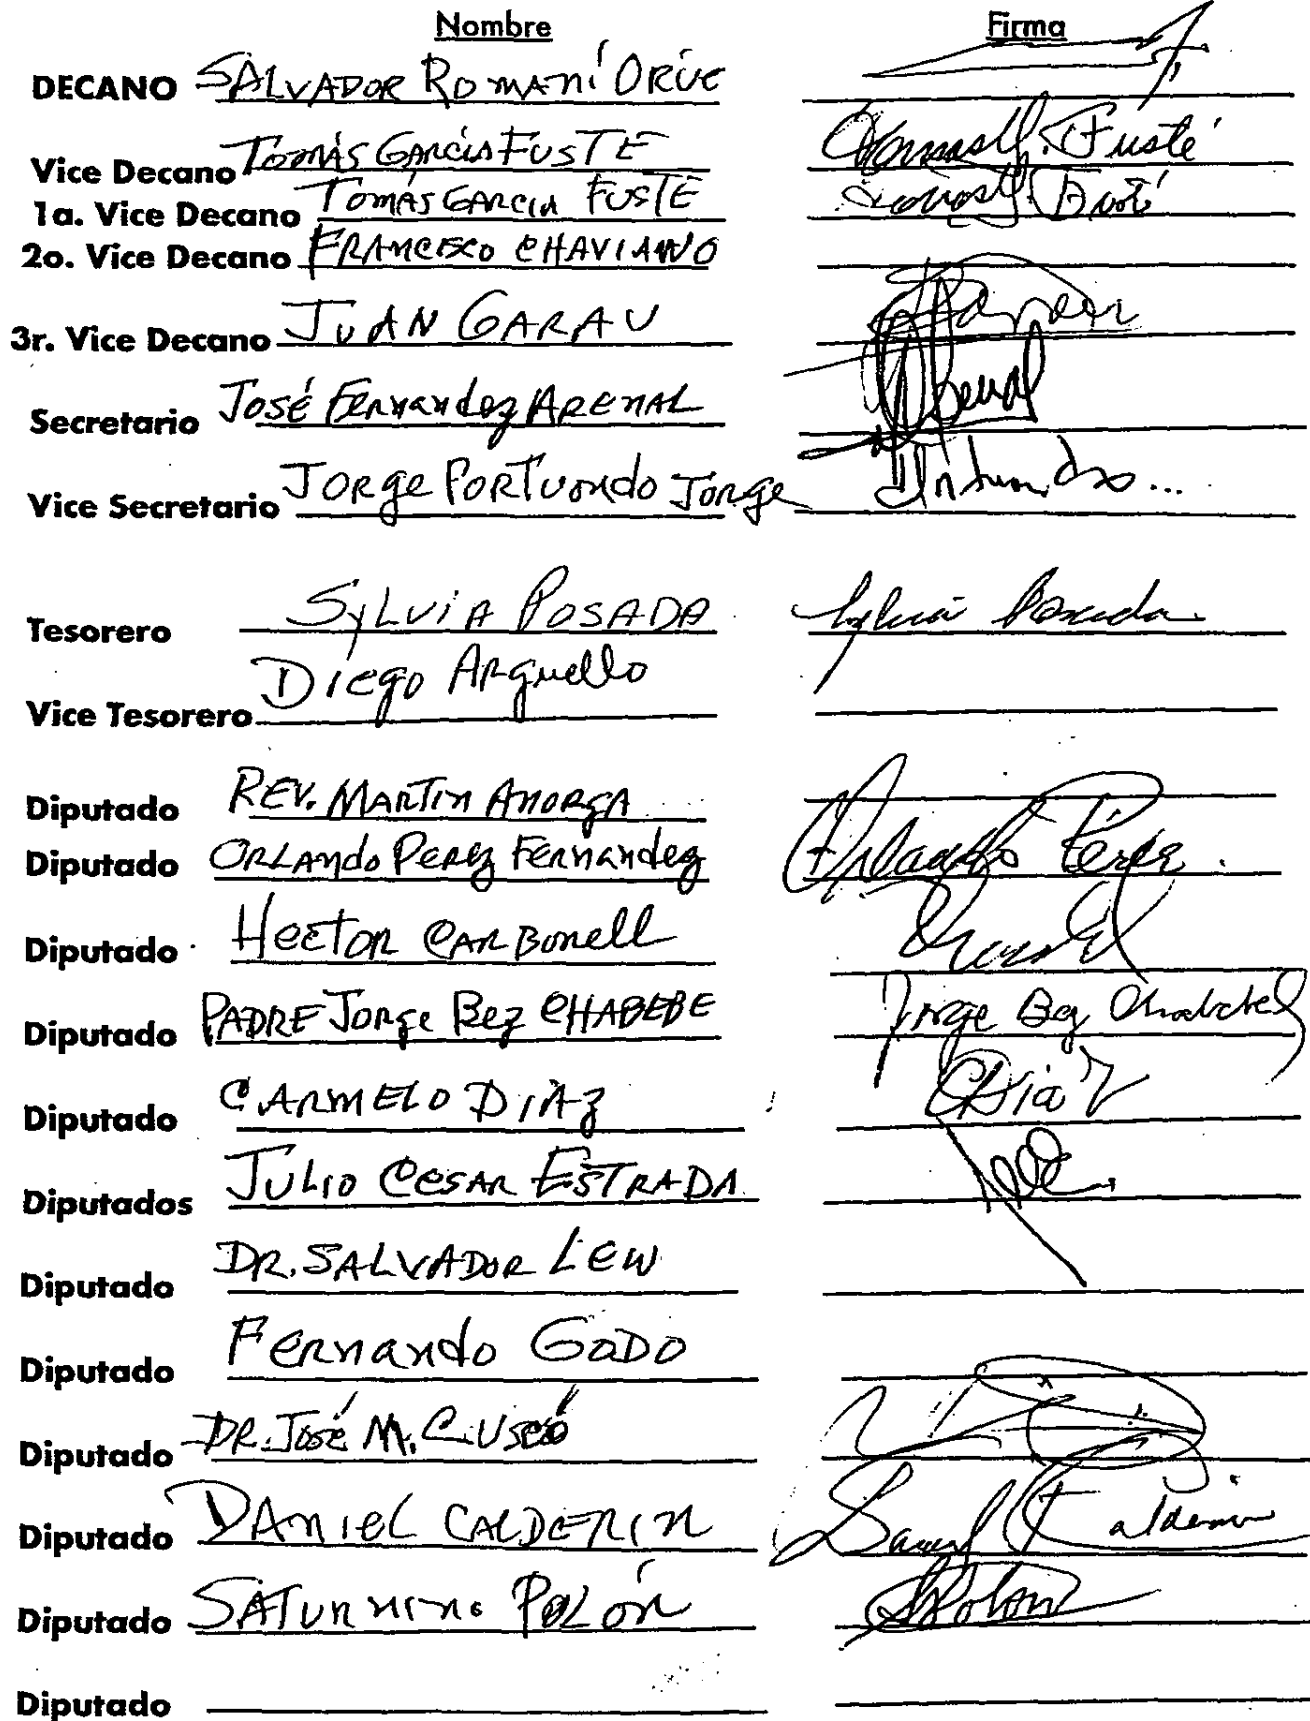 Nombre Firma
DECANO SALVADOR ROMANÍ ORUE
Vice Decano TOMÁS GARCÍA FUSTE Tomas G. Fusté
1a. Vice Decano TOMÁS GARCIA FUSTE Tomas G. Fusté
2o. Vice Decano FRANCISCO CHAVIANO
3r. Vice Decano JUAN GARAU
Secretario JOSÉ FERNANDEZ ARENAL Arenal
Vice Secretario JORGE PORTUONDO JORGE Portuondo...
Tesorero SYLVIA POSADA Sylvia Posada
Vice Tesorero Diego Arguello
Diputado REV. MARTIN AÑORGA
Diputado ORLANDO PEREZ FERNANDEZ Orlando Pérez.
Diputado HECTOR CARBONELL
Diputado PADRE JORGE BEZ CHABEBE Jorge Bez Chabebe
Diputado CARMELO DIAZ CDiaz
Diputados JULIO CESAR ESTRADA
Diputado DR. SALVADOR LEW
Diputado FERNANDO GODO
Diputado DR. JOSÉ M. CUSCÓ
Diputado DANIEL CALDERIN Daniel Calderin
Diputado SATURNINO POLÓN SPolon
Diputado